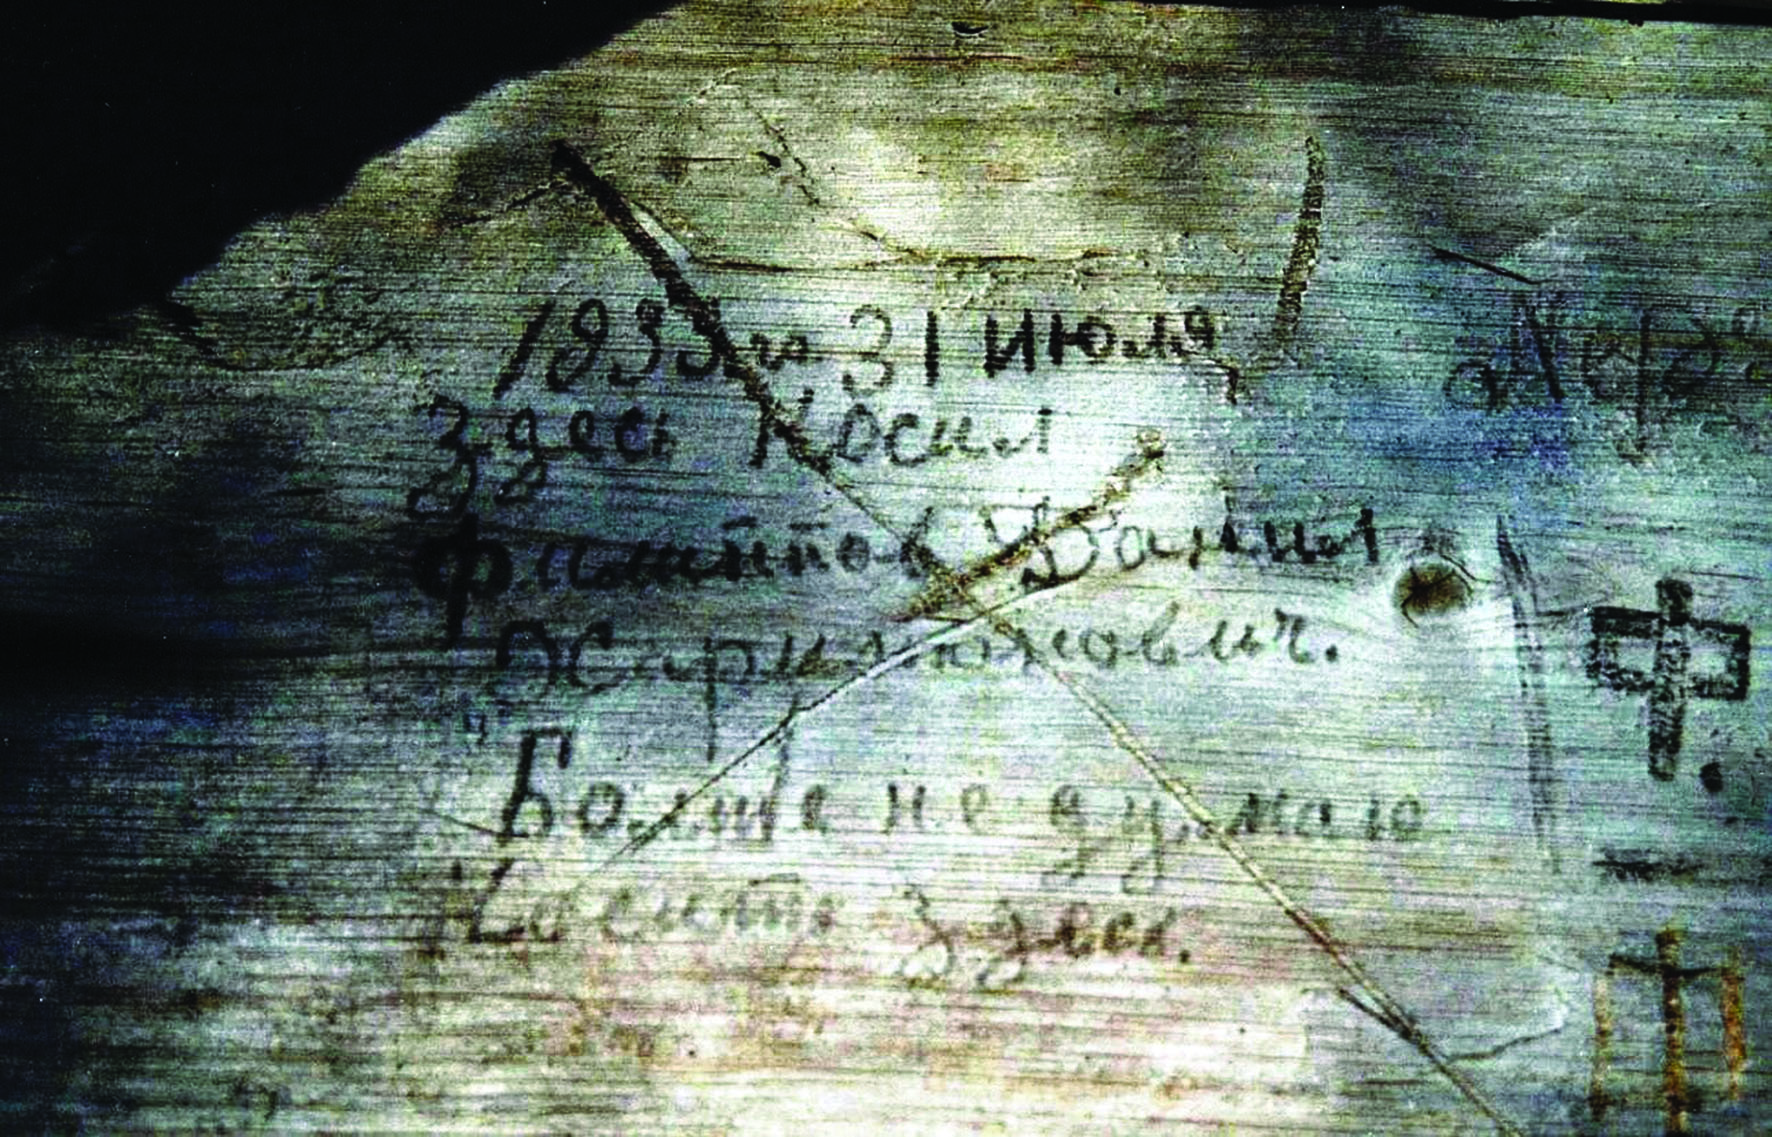 1933 го 31 июля
здесь косил
Филиппов Данил
"Больше не думаю
Косить здесь.
Ф.